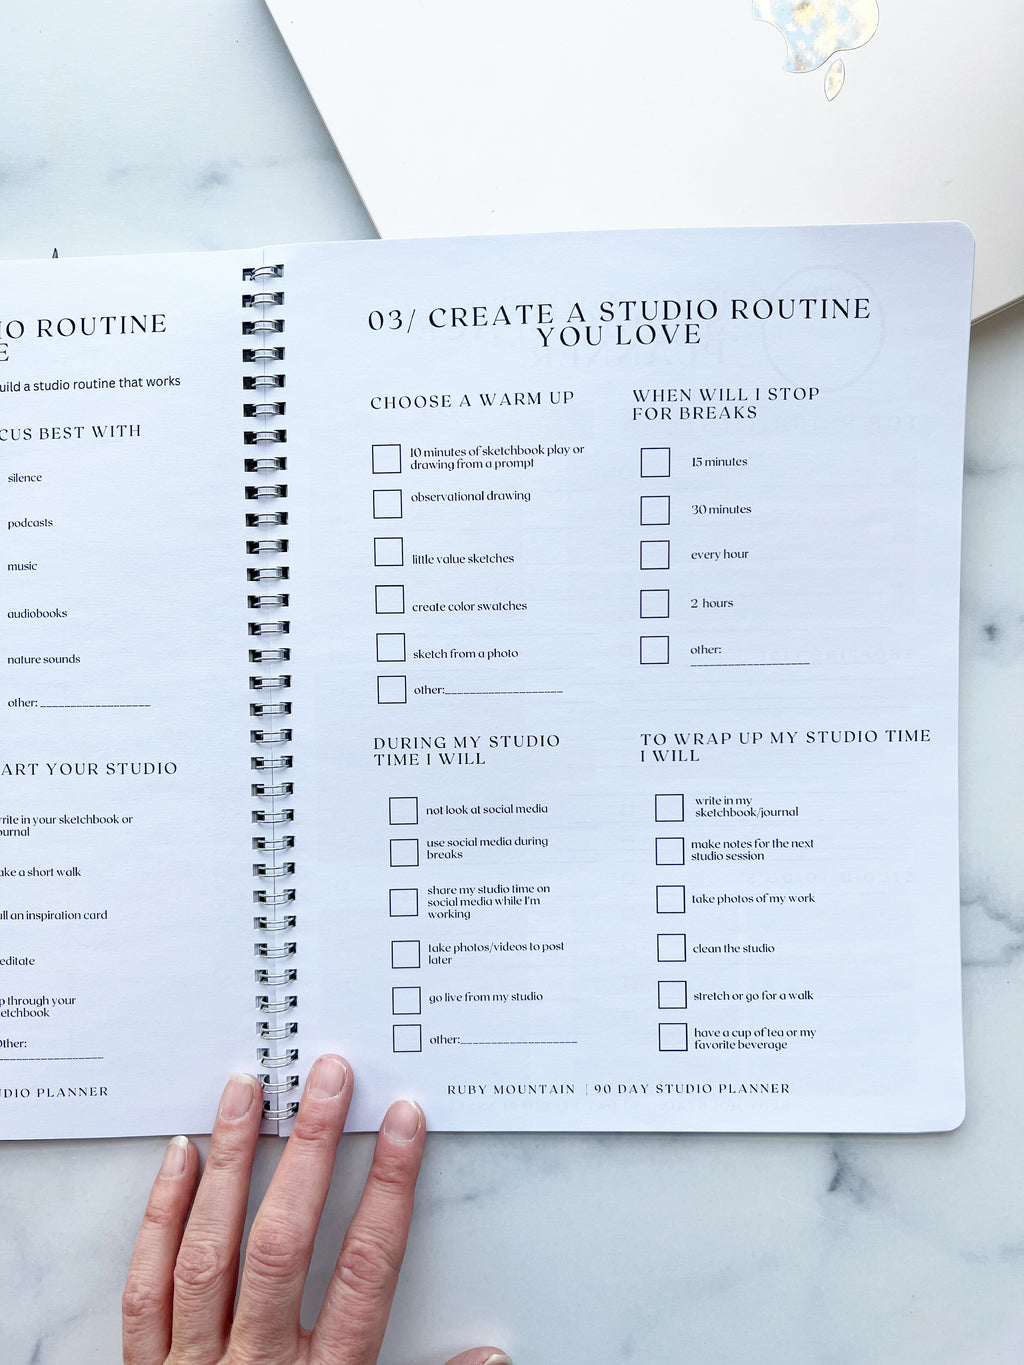 IO ROUTINE
E
uild a studio routine that works
CUS BEST WITH
silence
podcasts
music
audiobooks
nature sounds
other:___________________
ART YOUR STUDIO
rite in your sketchbook or
ournal
ake a short walk
ll an inspiration card
editate
p through your
etchbook
ther:
___________________
DIO PLANNER
03/ CREATE A STUDIO ROUTINE
YOU LOVE
CHOOSE A WARM UP
10 minutes of sketchbook play or
drawing from a prompt
observational drawing
little value sketches
create color swatches
sketch from a photo
other:___________________
WHEN WILL I STOP
FOR BREAKS
15 minutes
30 minutes
every hour
2 hours
other:
___________________
DURING MY STUDIO
TIME I WILL
not look at social media
use social media during
breaks
share my studio time on
social media while I'm
working
take photos/videos to post
later
go live from my studio
other:___________________
TO WRAP UP MY STUDIO TIME
I WILL
write in my
sketchbook/journal
make notes for the next
studio session
take photos of my work
clean the studio
stretch or go for a walk
have a cup of tea or my
favorite beverage
RUBY MOUNTAIN | 90 DAY STUDIO PLANNER